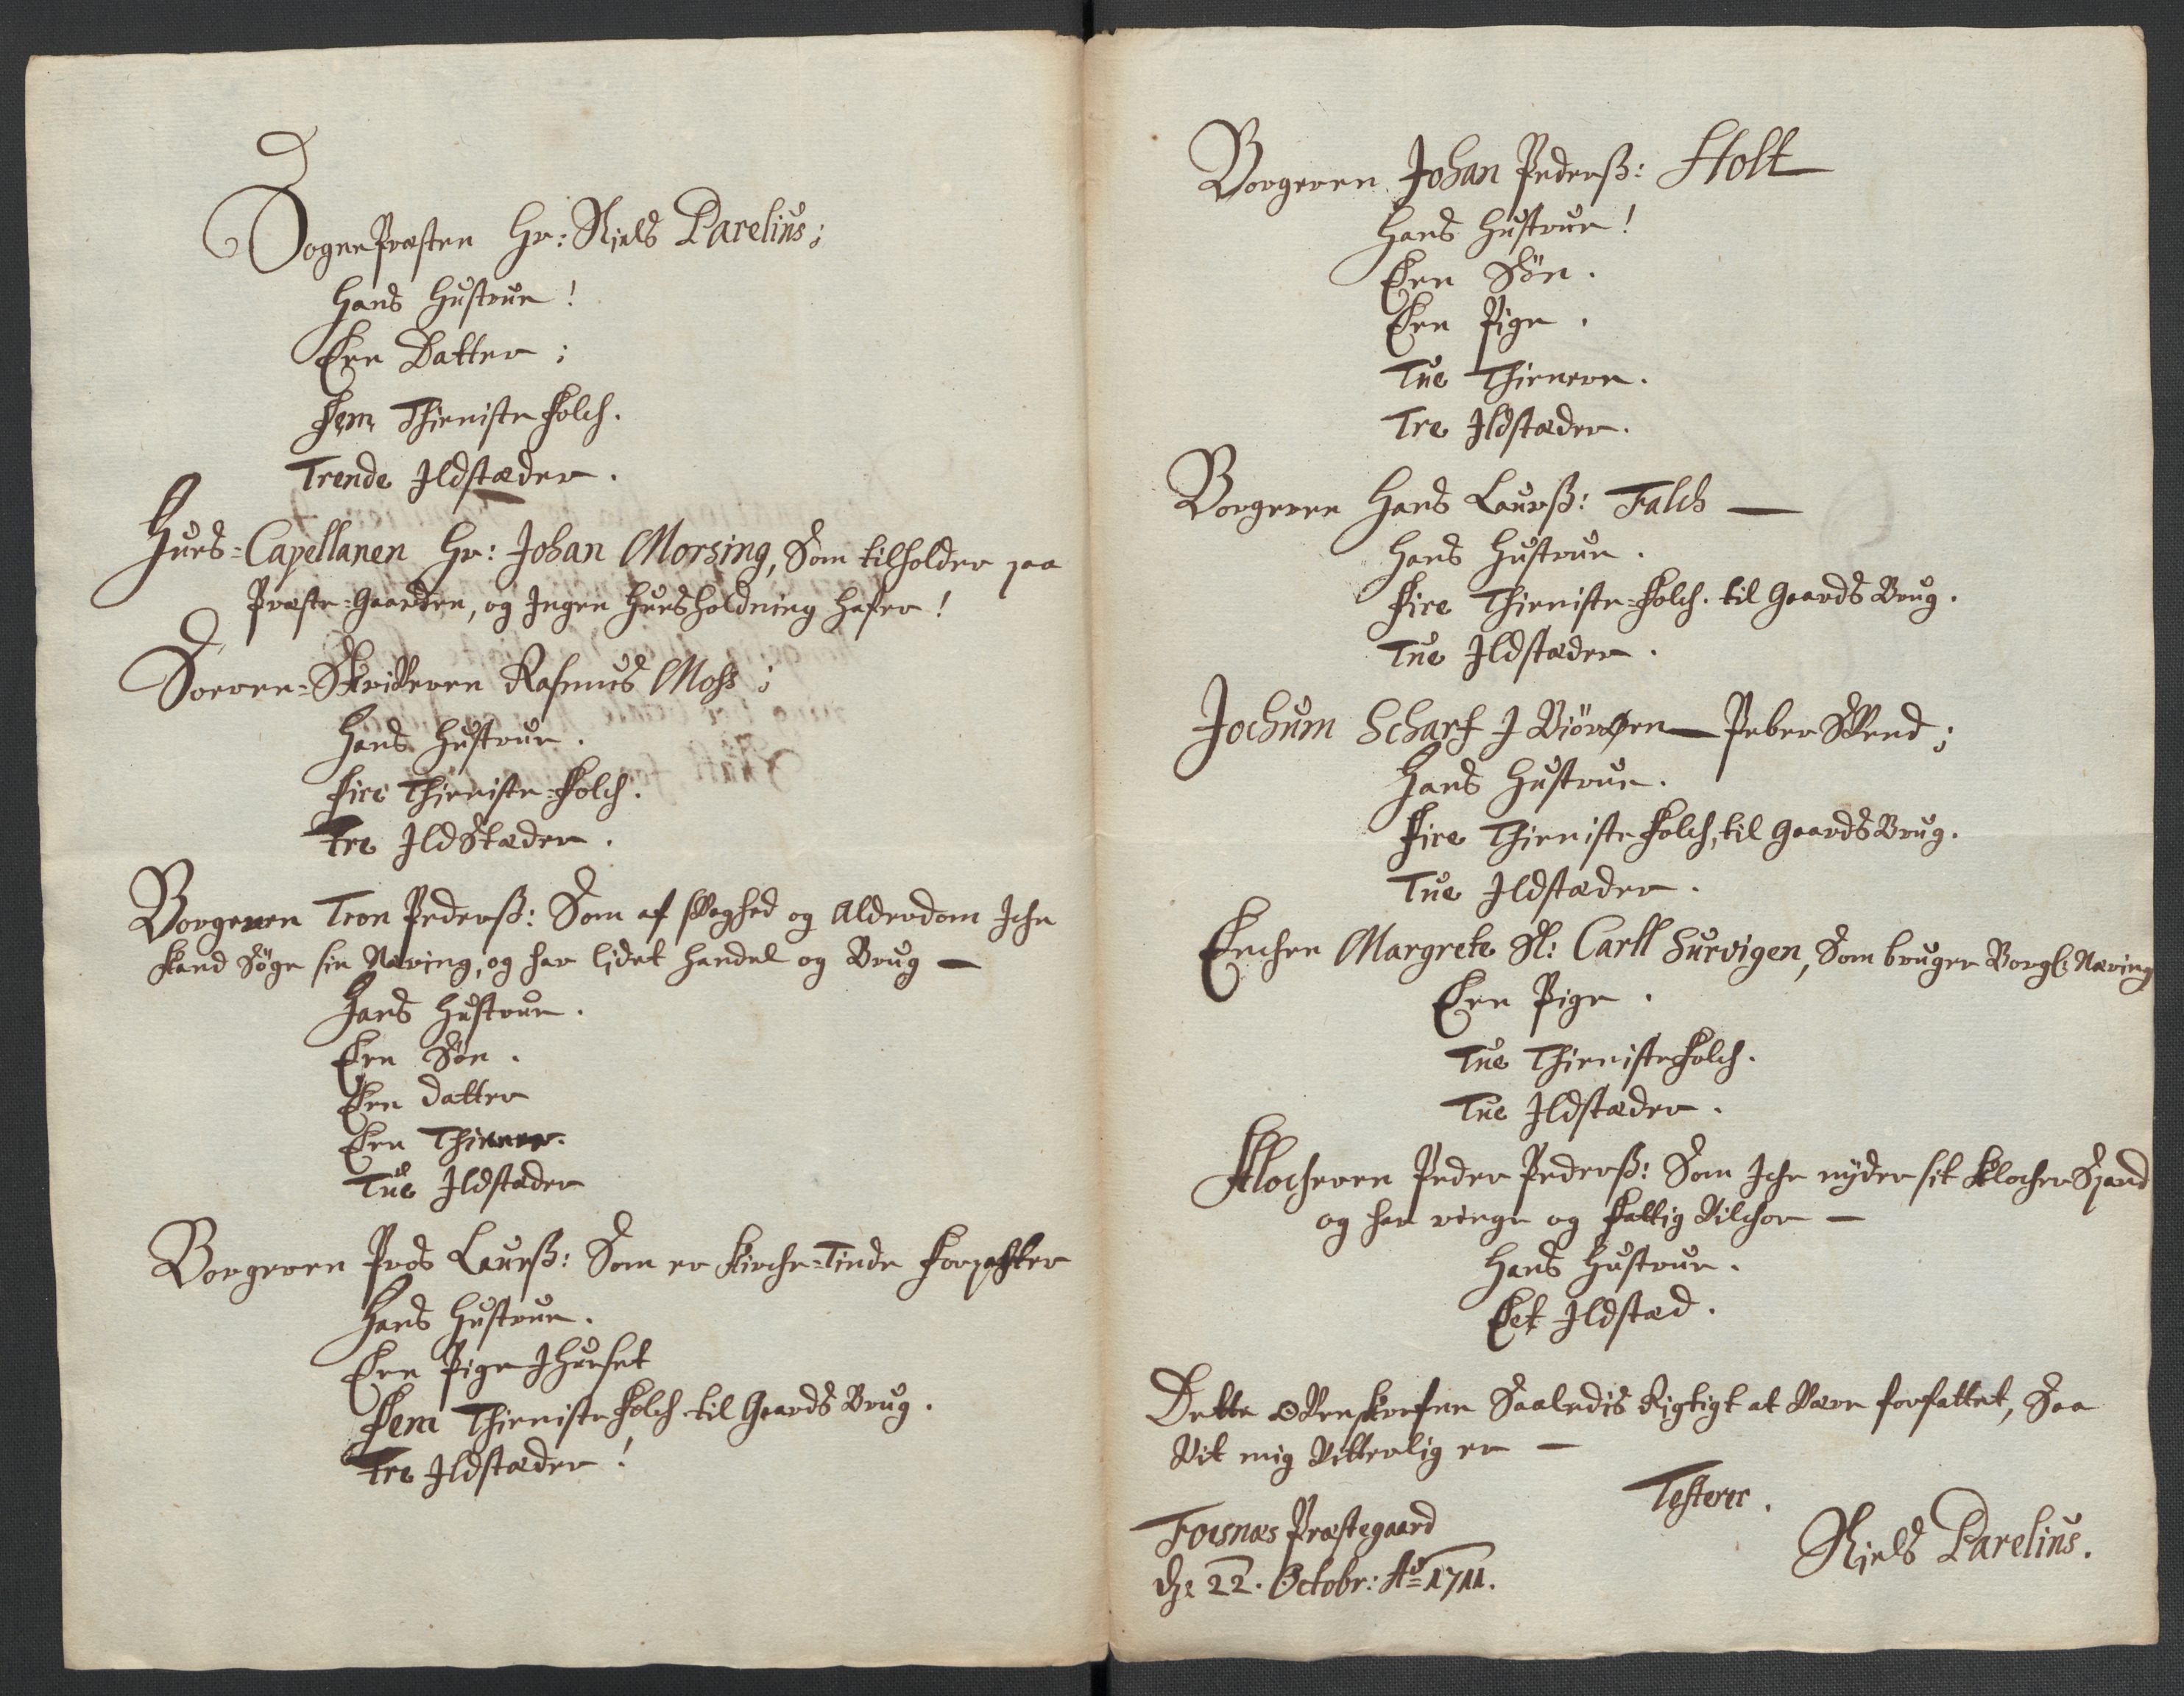 SognePræsten Hr: Niels Parelius;
Hans Hustrue!
Een Datter;
Fem Thieniste Folch.
Trende Ildstæder.
Huus-Capellanen Hr: Johan Morsing, Som tilholder paa
Præste-Gaarden, og Ingen Huusholdning hafver!
Soeren-Skriveren Rasmus Moss;
Hans Hustrue.
Fire Thieniste-Folch.
Tre IldStæder.
Borgeren Tron Pederß: Som af svaghed og Alderdom Iche
kand Søge sin Næring, og har lidet handel og Brug —
Hans Hustrue.
Een Søn.
Een datter
Een Thiener.
Tue Ildstæder
Borgeren Laurß: Som er Kirche-Tinde Forpagter
Hans Hustrue.
Een Pige I Huuset
Fem Thieniste Folch til Gaards Brug.
Tre Ildstæder!
Borgeren Johan Pederß: Holt
Hans Hustrue!
Een Søn.
Een Pige.
Tue Thienere.
Tre Ildstæder.
Borgeren Hans Laurß: Falch —
Hans Hustrue.
Fire Thieniste-Folch. til Gaards Brug.
Tue Ildstæder.
Jochum Scharf I Biörøen — Peber Svend;
Hans Hustrue.
Fire Thieniste Folch, til Gaards Brug.
Tue Ildstæder.
Enchen Margrete Sl: Carll Survigen, Som bruger Borgl: Næring
Een Pige.
Tue ThienisteFolch.
Tue Ildstæder.
Klocheren Peder Pederß: Som Iche nyder sit Klocher
og har ringe og Fattig Vilchor —
Hans Hustrue.
Eet Ildstæd.
Dette Ovenskrefne Saaledis Rigtigt at Være forfattet, Saa
Vit mig Vitterlig er —
Testerer.
Foesnæs Præstegaard
dn 22. Octobr: Aō 1711.
Niels Parelius.